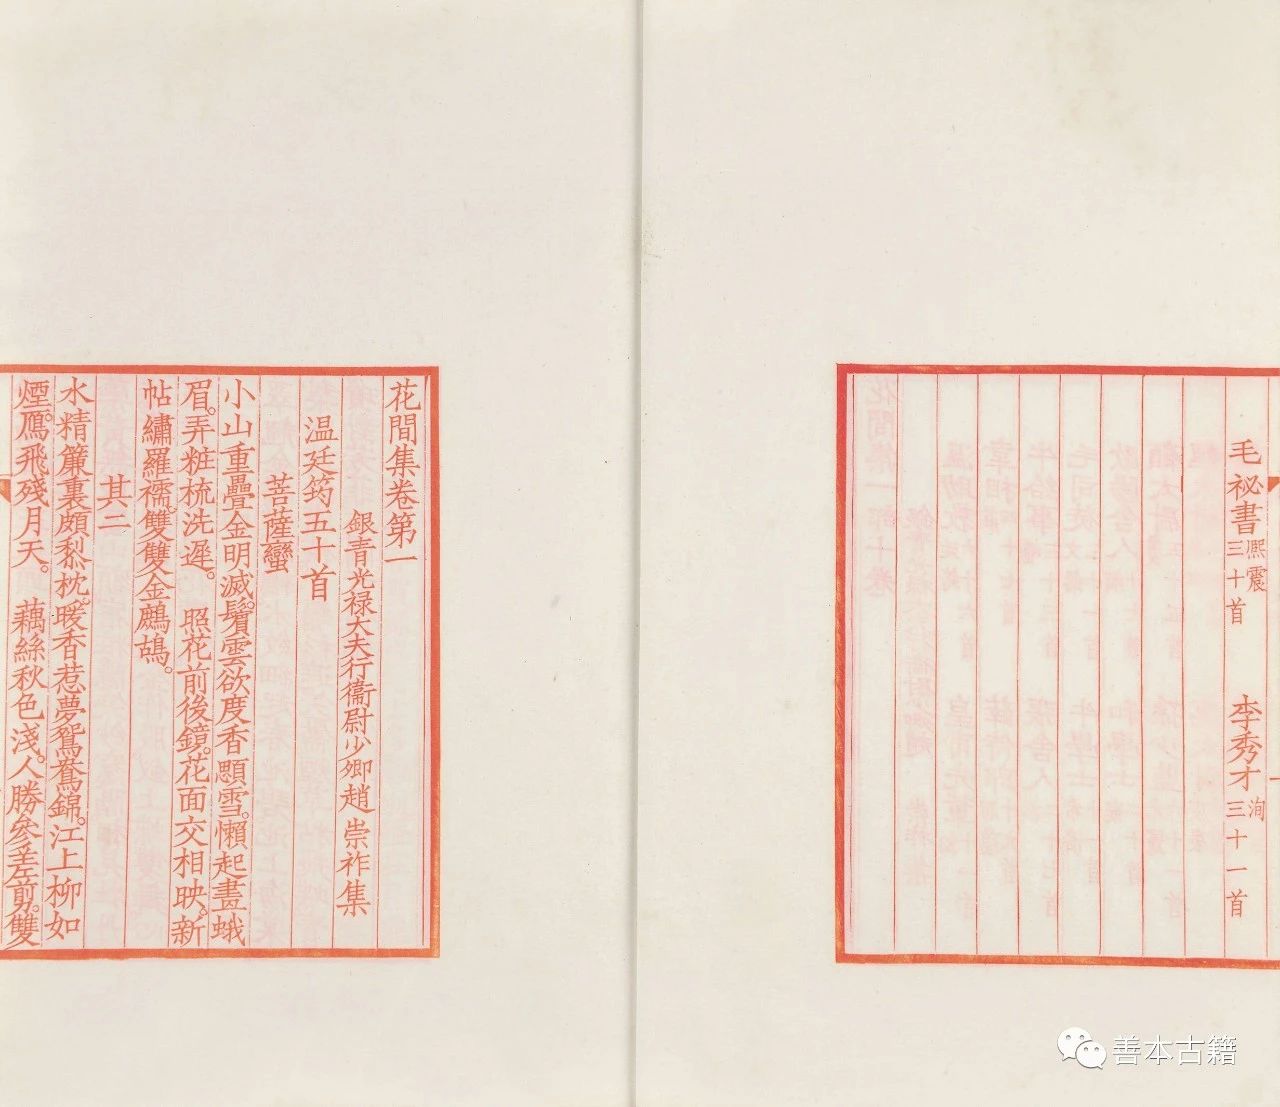 毛祕書熙震三十首　李秀才洵三十一首
花間集卷第一
銀青光祿大夫行衞尉少卿趙崇祚集
温廷筠五十首
菩薩蠻
小山重疊金明滅。鬢雲欲度香顋雪。懶起畫蛾
眉。弄粧梳洗遲。　照花前後鏡。花面交相映。新
帖繡羅襦。雙雙金鷓鴣。
其二
水精簾裏頗黎枕。暖香惹夢鴛鴦錦。江上柳如
煙。鴈飛殘月天。　藕絲秋色淺。人勝參差剪。雙
善本古籍